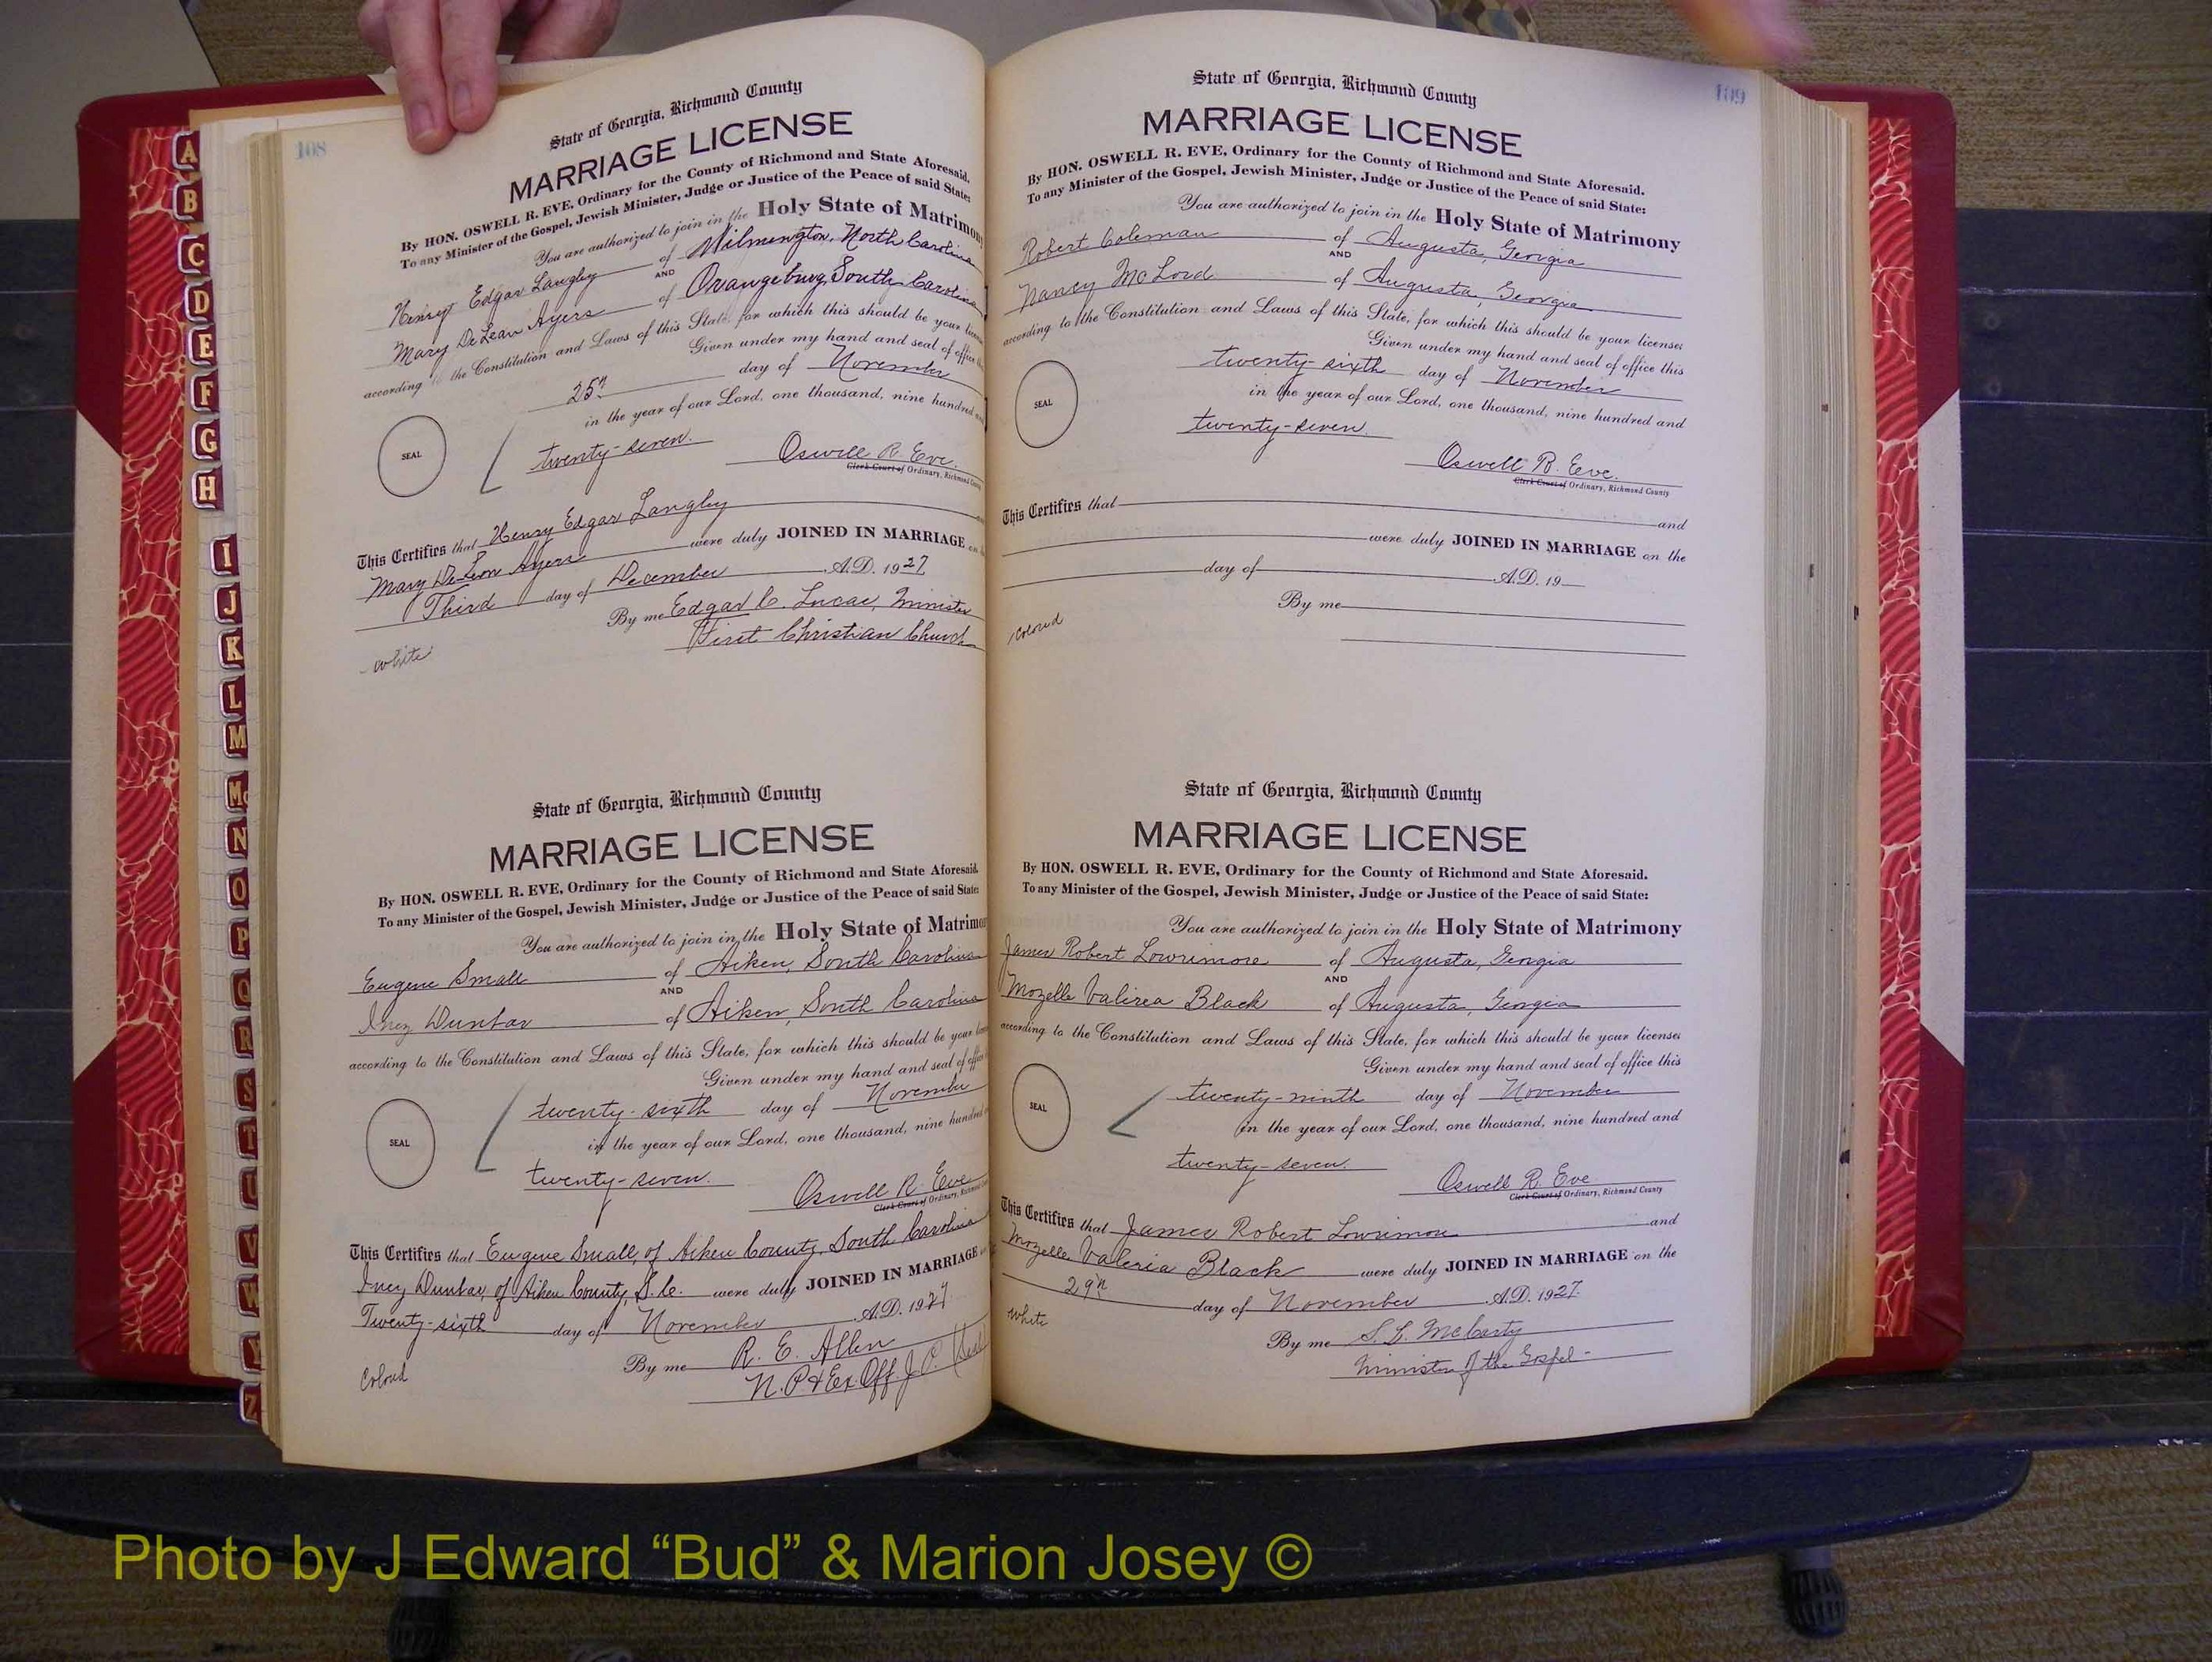 108
State of Georgia, Richmond County
MARRIAGE LICENSE
By HON. OSWELL R. EVE, Ordinary for the County of Richmond and State Aforesaid.
To any Minister of the Gospel, Jewish Minister, Judge or Justice of the Peace of said State:
You are authorized to join in the Holy State of Matrimony
Henry Edgar Langley of Wilmington, North Carolina
AND
Mary DeLean Ayers of Orangeburg, South Carolina
according to the Constitution and Laws of this State, for which this should be your license
Given under my hand and seal of office this
25th day of November
in the year of our Lord, one thousand, nine hundred and
SEAL
twenty-seven.
Oswell R. Eve.
Clerk Court of Ordinary, Richmond County
This Certifies that Henry Edgar Langley and
Mary DeLeon Ayers were duly JOINED IN MARRIAGE on the
Third day of December A.D. 1927
By me Edgar C. Lucas, Minister
First Christian Church
white
State of Georgia, Richmond County
MARRIAGE LICENSE
By HON. OSWELL R. EVE, Ordinary for the County of Richmond and State Aforesaid.
To any Minister of the Gospel, Jewish Minister, Judge or Justice of the Peace of said State:
You are authorized to join in the Holy State of Matrimony
Eugene Small of Aiken, South Carolina
AND
Inez Dunbar of Aiken, South Carolina
according to the Constitution and Laws of this State, for which this should be your license
Given under my hand and seal of office
twenty-sixth day of November
in the year of our Lord, one thousand, nine hundred
SEAL
twenty-seven.
Oswell R. Eve
Clerk Court of Ordinary, Richmond
This Certifies that Eugene Small, of Aiken County, South Carolina
Inez Dunbar, of Aiken County, S.C. were duly JOINED IN MARRIAGE
Twenty-sixth day of November A.D. 1927
By me R. E. Allen
N.P. & Ex. Off J.P. (Seal
Colored
109
State of Georgia, Richmond County
MARRIAGE LICENSE
By HON. OSWELL R. EVE, Ordinary for the County of Richmond and State Aforesaid.
To any Minister of the Gospel, Jewish Minister, Judge or Justice of the Peace of said State:
You are authorized to join in the Holy State of Matrimony
Robert Coleman of Augusta, Georgia
AND
Nancy McLord of Augusta, Georgia
according to the Constitution and Laws of this State, for which this should be your license:
Given under my hand and seal of office this
twenty-sixth day of November
in the year of our Lord, one thousand, nine hundred and
SEAL
twenty-seven.
Oswell R. Eve.
Clerk Court of Ordinary, Richmond County
This Certifies that and
were duly JOINED IN MARRIAGE on the
day of A.D. 19
By me
colored
State of Georgia, Richmond County
MARRIAGE LICENSE
By HON. OSWELL R. EVE, Ordinary for the County of Richmond and State Aforesaid.
To any Minister of the Gospel, Jewish Minister, Judge or Justice of the Peace of said State:
You are authorized to join in the Holy State of Matrimony
James Robert Lowrimore of Augusta, Georgia
AND
Mozelle Valirea Black of Augusta, Georgia
according to the Constitution and Laws of this State, for which this should be your license:
Given under my hand and seal of office this
twenty-ninth day of November
in the year of our Lord, one thousand, nine hundred and
SEAL
twenty-seven.
Oswell R. Eve
Clerk Court of Ordinary, Richmond County
This Certifies that James Robert Lowrimore and
Mozelle Valeria Black were duly JOINED IN MARRIAGE on the
29th day of November A.D. 1927.
By me S. L. McCarty
Minister of the Gospel-
white
A
B
C
D
E
F
G
H
I
J
K
L
M
Mc
N
O
P
Q
R
S
T
U
V
W
Y
Z
Photo by J Edward “Bud” & Marion Josey ©